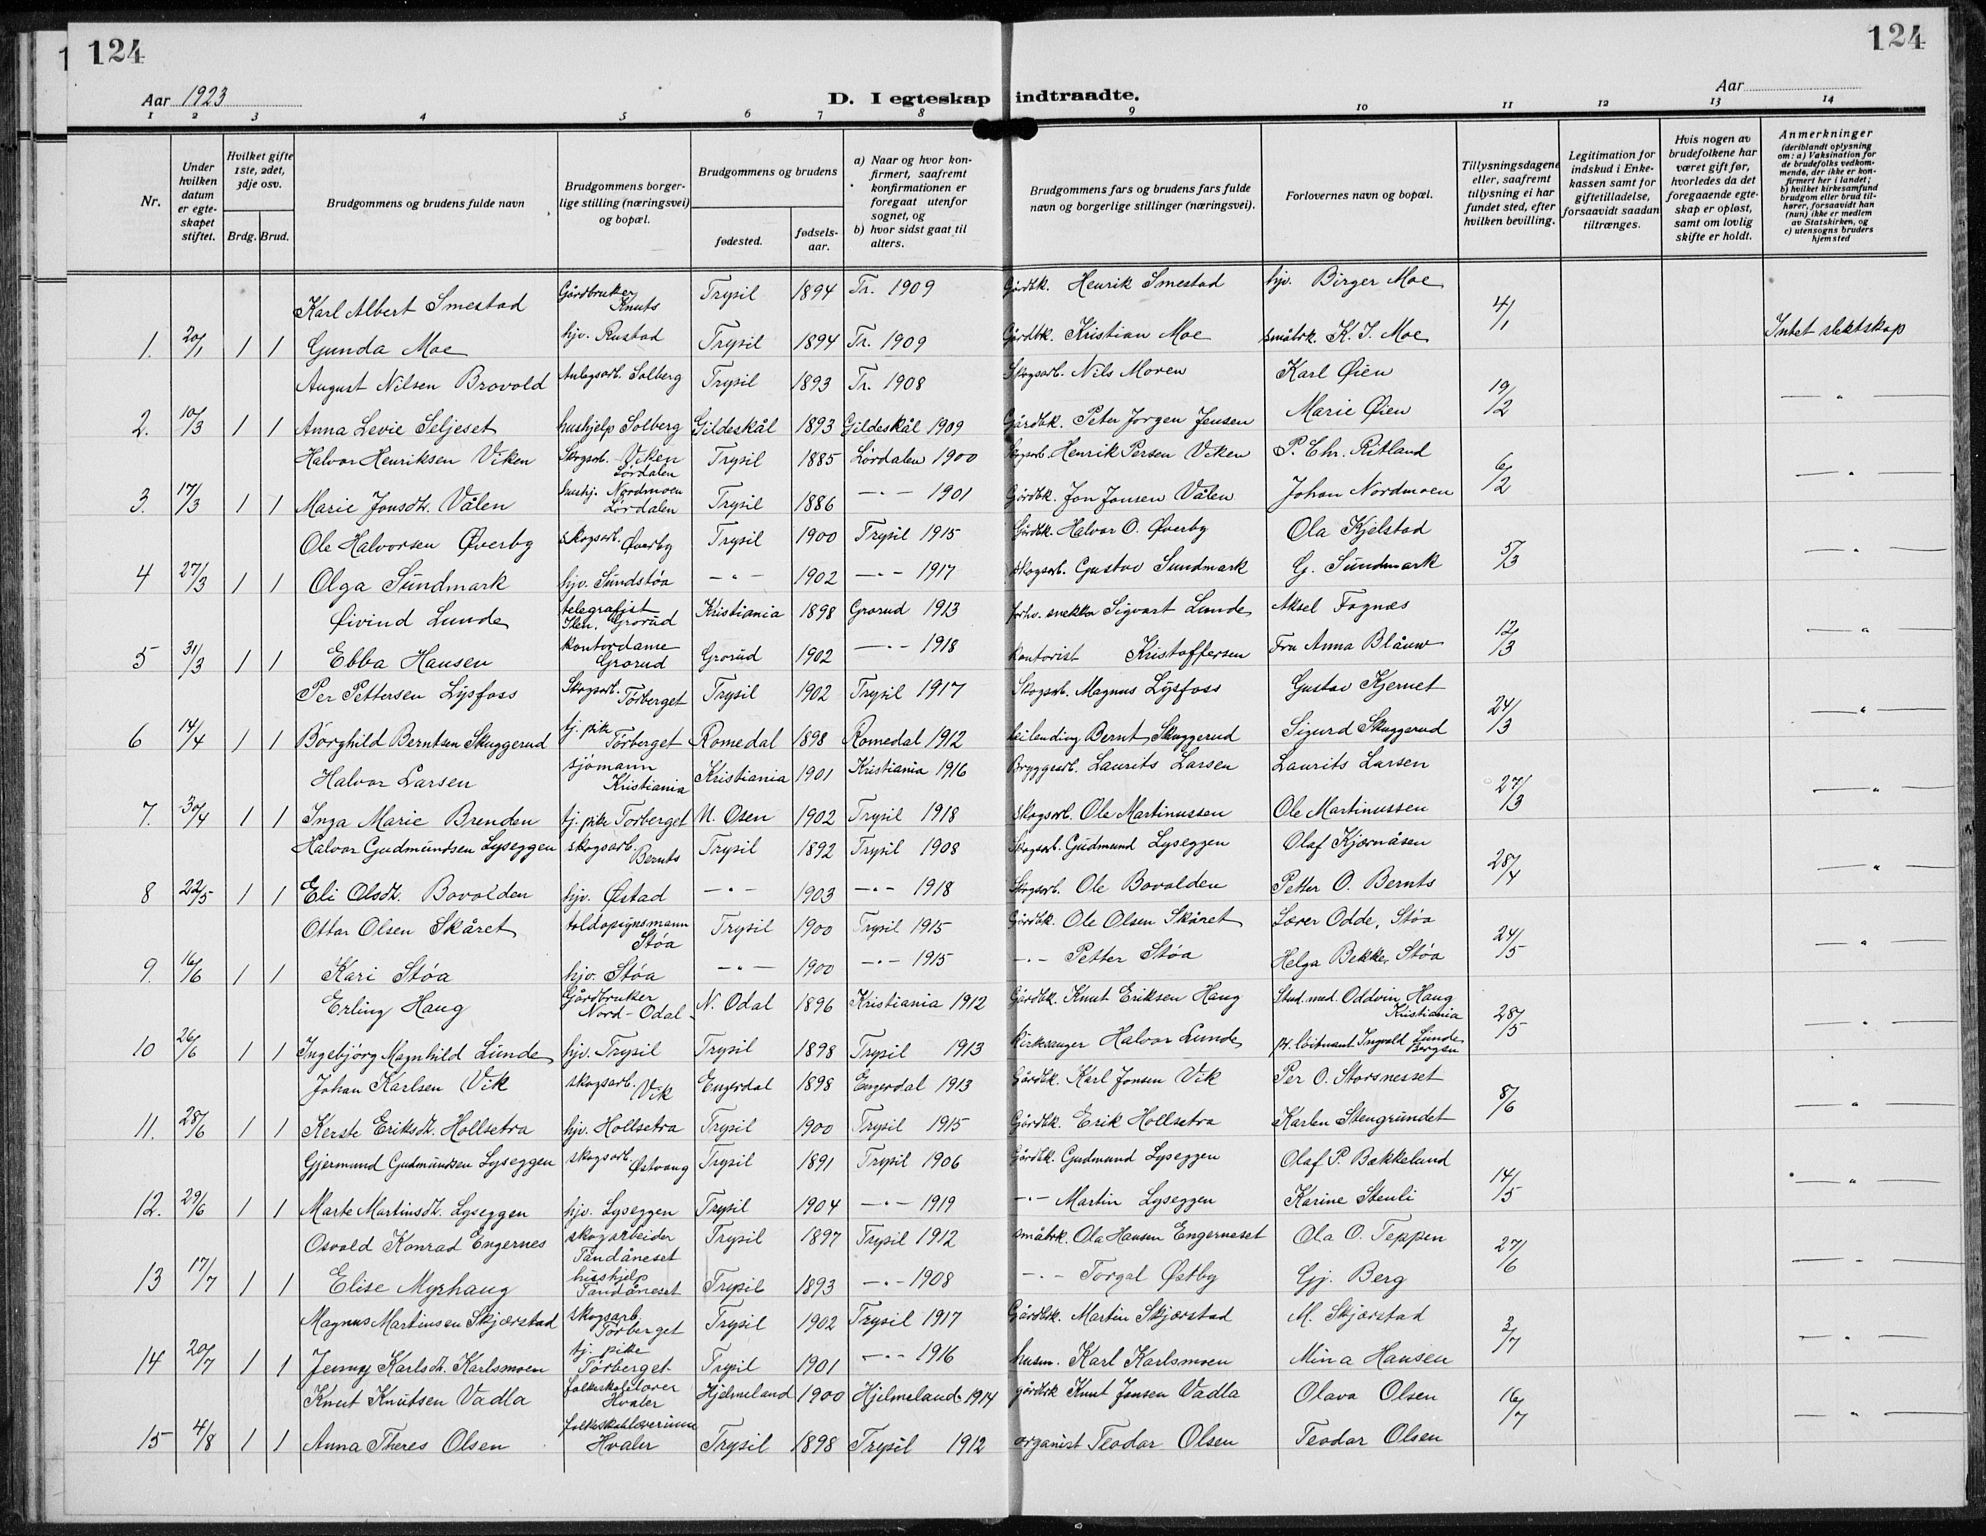 124
124
Aar 1923
D. I egteskap indtraadte.
Aar
1 2 3 4 5 6 7 8 9 10 11 12 13 14
Nr.
Under hvilken datum er egteskapet stiftet.
Hvilket gifte 1ste, 2det, 3dje osv.
Brdg. Brud.
Brudgommens og brudens fulde navn
Brudgommens borgerlige stilling (næringsvei) og bopæl.
Brudgommens og brudens
fødested.
fødselsaar.
a) Naar og hvor konfirmert, saafremt konfirmationen er foregaat utenfor sognet, og
b) hvor sidst gaat til alters.
Brudgommens fars og brudens fars fulde navn og borgerlige stillinger (næringsvei).
Forlovernes navn og bopæl.
Tillysningsdagene eller, saafremt tillysning ei har fundet sted, efter hvilken bevilling.
Legitimation for indskud i Enkekassen samt for giftetilladelse, forsaavidt saadan tiltrænges.
Hvis nogen av brudefolkene har været gift før, hvorledes da det foregaaende egteskap er opløst, samt om lovlig skifte er holdt.
Anmerkninger (deriblandt oplysning om: a) Vaksination for de brudefolks vedkommende, der ikke er konfirmert her i landet; b) hvilket kirkesamfund brudgom eller brud tilhører, forsaavidt han (hun) ikke er medlem av Statskirken, og c) utensogns bruders hjemsted
Karl Albert Smestad Gårdbruker Knuts Trysil 1894 Tr. 1909 Gårdbk. Henrik Smestad hjv. Birger Moe 4/1
1. 20/1 1 1 Gunda Moe hjv. Rustad Trysil 1894 Tr. 1909 Gårdbk. Kristian Moe småbrk. K. J. Moe Intet slektskap
August Nilsen Brovold Anlegsarb. Solberg Trysil 1893 Tr. 1908 Skogsarb. Nils Moren Karl Øien 19/2
2. 10/3 1 1 Anna Levie Seljeset hushjelp Solberg Gildeskål 1893 Gildeskål 1909 Gårdbk. Peter Jørgen Jensen Marie Øien — " —
Halvor Henriksen Viken Skogsarb. Viken Lørdalen Trysil 1885 Lørdalen 1900 Skogsarb. Henrik Persen Viken P. Chr. Ritland 6/2
3. 17/3 1 1 Marie Jonsdt. Vålen hushj. Nordmoen Lørdalen Trysil 1886 — " — 1901 Gårdbk. Jon Jonsen Vålen Johan Nordmoen — " —
Ole Halvorsen Øverby skogsarb. Øverby Trysil 1900 Trysil 1915 Gårdbk. Halvor O. Øverby Ola Kjelstad 5/3
4 27/3 1 1 Olga Sundmark hjv. Sundstøa — " — 1902 — " — 1917 skogsarb. Gustav Sundmark G. Sundmark — " —
Øivind Lunde telegrafist Grorud Kristiania 1898 Grorud 1913 forhv. snekker Sigvart Lunde Aksel Fagnæs 12/3
5 31/3 1 1 Ebba Hansen kontordame Grorud Grorud 1902 — " — 1918 kontorist Kristoffersen Fru Anna Blåuw — " —
Per Pettersen Lysfoss Skogsarb. Tørberget Trysil 1902 Trysil 1917 Skogsarb. Magnus Lysfoss Gustav Kjernet 24/3
6 14/4 1 1 Borghild Berntsen Skuggerud tj. pike Tørberget Romedal 1898 Romedal 1912 leilending Bernt Skuggerud Sigurd Skuggerud — " —
Halvor Larsen sjømann Kristiania Kristiania 1901 Kristiania 1916 Bryggearb. Laurits Larsen Laurits Larsen 27/3
7. 30/4 1 1 Inga Marie Brenden tj. pike Tørberget N. Osen 1902 Trysil 1918 skogsarb. Ole Martinussen Ole Martinussen — " —
Halvor Gudmundsen Lyseggen skogsarb. Bernts Trysil 1892 Trysil 1908 Skogsarb. Gudmund Lyseggen Olaf Kjærnåsen 28/4
8 22/5 1 1 Eli Olsdt. Bovolden hjv. Østad — " — 1903 — " — 1918 Skogsarb. Ole Bovolden Petter O. Bernts — " —
Ottar Olsen Skåret toldopsynsmann Støa Trysil 1900 Trysil 1915 Gårdbk. Ole Olsen Skåret Lærer Odde, Støa 24/5
9. 16/6 1 1 Kari Støa hjv. Støa — " — 1900 — " — 1915 — " — Petter Støa Helga Bekker, Støa — " —
Erling Haug Gårdbruker Nord-Odal N. Odal 1896 Kristiania 1912 Gårdbk. Knut Eriksen Haug Stud. med. Oddvin Haug Kristiania 28/5
10 26/6 1 1 Ingebjørg Magnhild Lunde hjv. Trysil Trysil 1898 Trysil 1913 Kirkesanger Halvor Lunde pr. løitnant Ingvald Lunde Bergen — " —
Johan Karlsen Vik skogsarb. Vik Engerdal 1898 Engerdal 1913 Gårdbk. Karl Jonsen Vik Per O. Storsnesset 8/6
11. 28/6 1 1 Kerste Eriksdt. Hollsetra hjv. Hollsetra Trysil 1900 Trysil 1915 Gårdbk. Erik Hollsetra Karlen Stengrundet — " —
Gjermund Gudmundsen Lyseggen skogsarb. Østvang Trysil 1891 Trysil 1906 Gårdbk. Gudmund Lyseggen Olaf P. Bækkelund 14/5
12. 29/6 1 1 Marte Martinsdt. Lyseggen hjv. Lyseggen Trysil 1904 — " — 1919 — " — Martin Lyseggen Karine Stenli — " —
Osvald Konrad Engernes skogarbeider Tandåneset Trysil 1897 Trysil 1912 småbrk. Ola Hansen Engerneset Ola O. Teppen 27/6
13 17/7 1 1 Elise Myrhaug hushjelp Tandåneset Trysil 1893 — " — 1908 — " — Torgal Østby Gj. Berg — " —
Magnus Martinsen Skjærstad skogsarb. Tørberget Trysil 1902 Trysil 1917 Gårdbk. Martin Skjærstad M. Skjærstad 3/7
14 20/7 1 1 Jenny Karlsdt. Karlsmoen tj. pike Tørberget Trysil 1901 — " — 1916 husm. Karl Karlsmoen Mina Hansen — " —
Knut Knutsen Vadla folkeskolelærer Hvaler Hjelmeland 1900 Hjelmeland 1914 gårdbrk Knut Jonsen Vadla Olava Olsen 16/7
15 4/8 1 1 Anna Theres Olsen folkeskolelærerinne Hvaler Trysil 1898 Trysil 1912 organist Teodar Olsen Teodar Olsen — " —